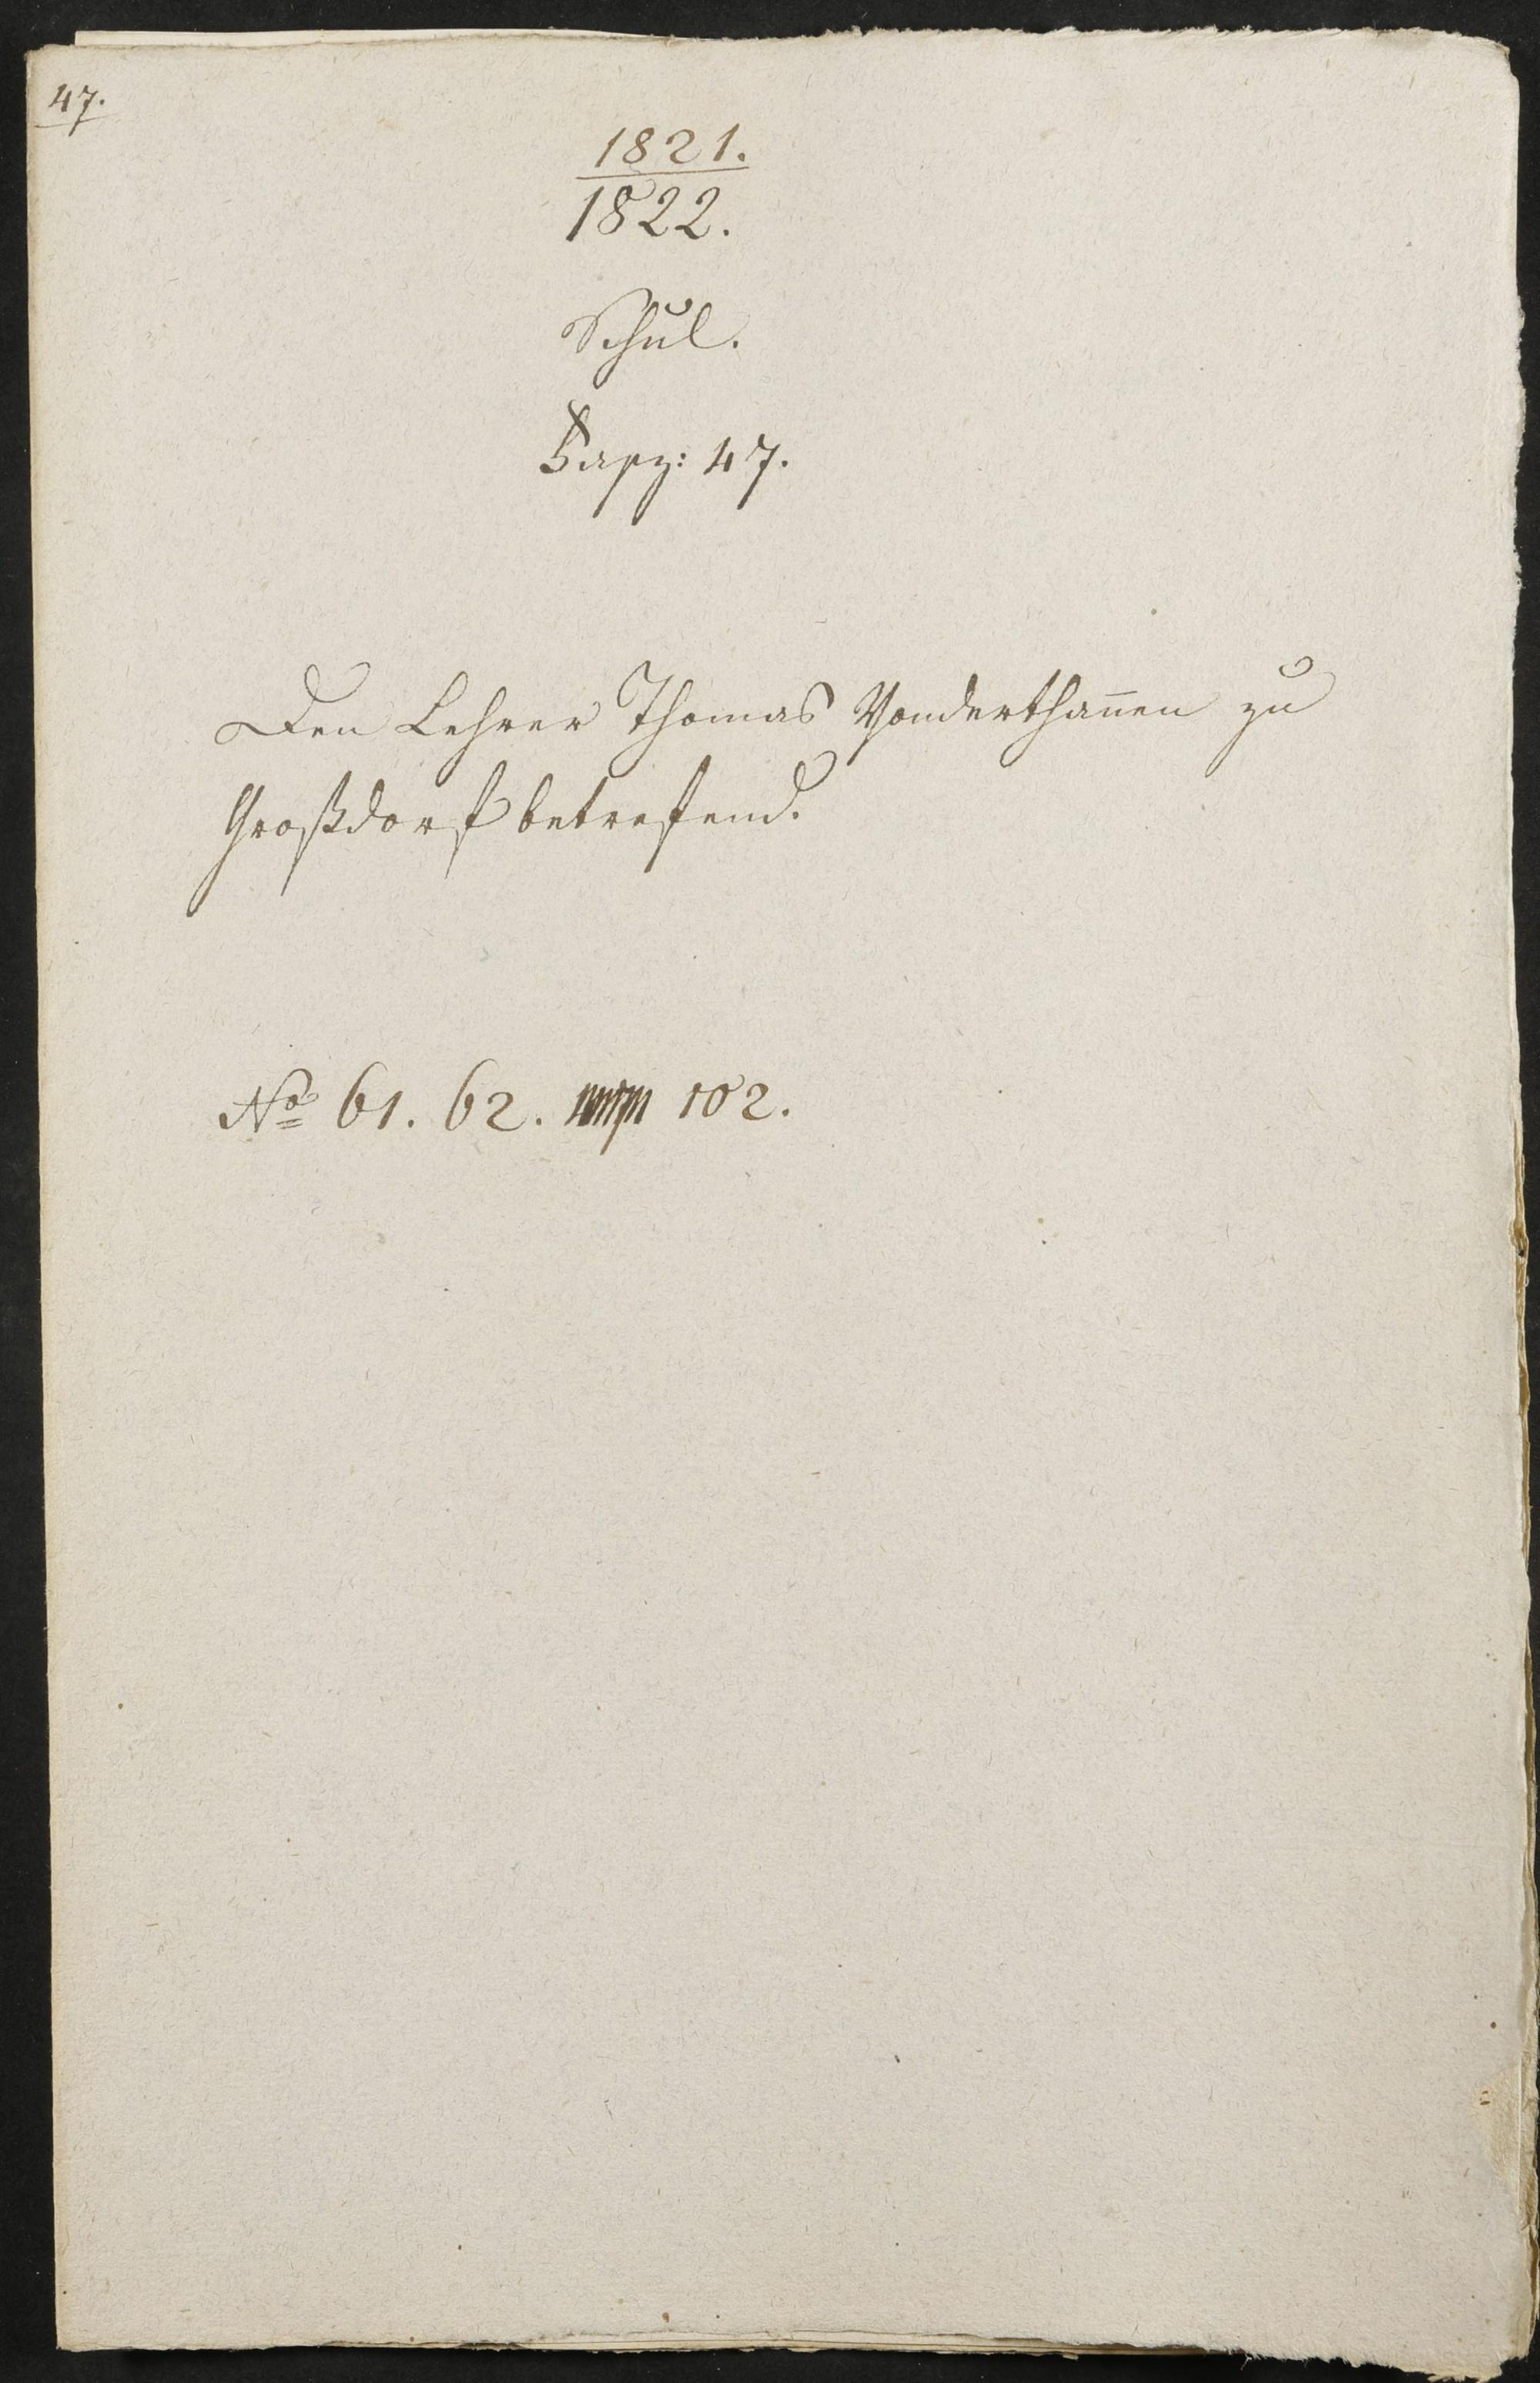 47.
1821.
1822.
Schul.
Fasz: 47.
Den Lehrer Thomas Vonderthañen zu
Großdorf betrefend.
No 61. 62. 102.